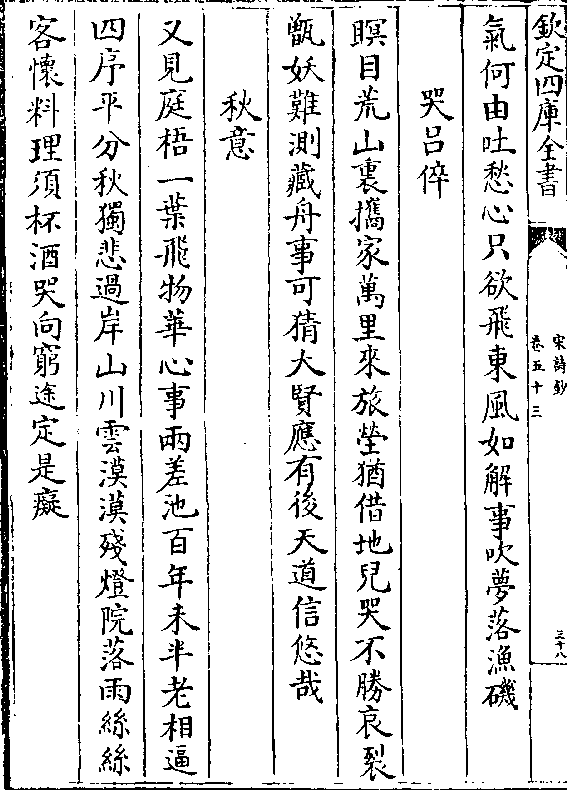 欽定四庫全書
宋詩鈔
卷五十三
三十八
氣何由吐愁心只欲飛東風如解事吹夢落漁磯
哭吕倅
瞑目荒山裏攜家萬里來旅塋猶借地兒哭不勝哀裂
甑妖難測藏舟事可猜大賢應有後天道信悠哉
秋意
又見庭梧一葉飛物華心事兩差池百年未半老相逼
四序平分秋獨悲過岸山川雲漠漠殘燈院落雨絲絲
客懷料理須杯酒哭向窮途定是癡